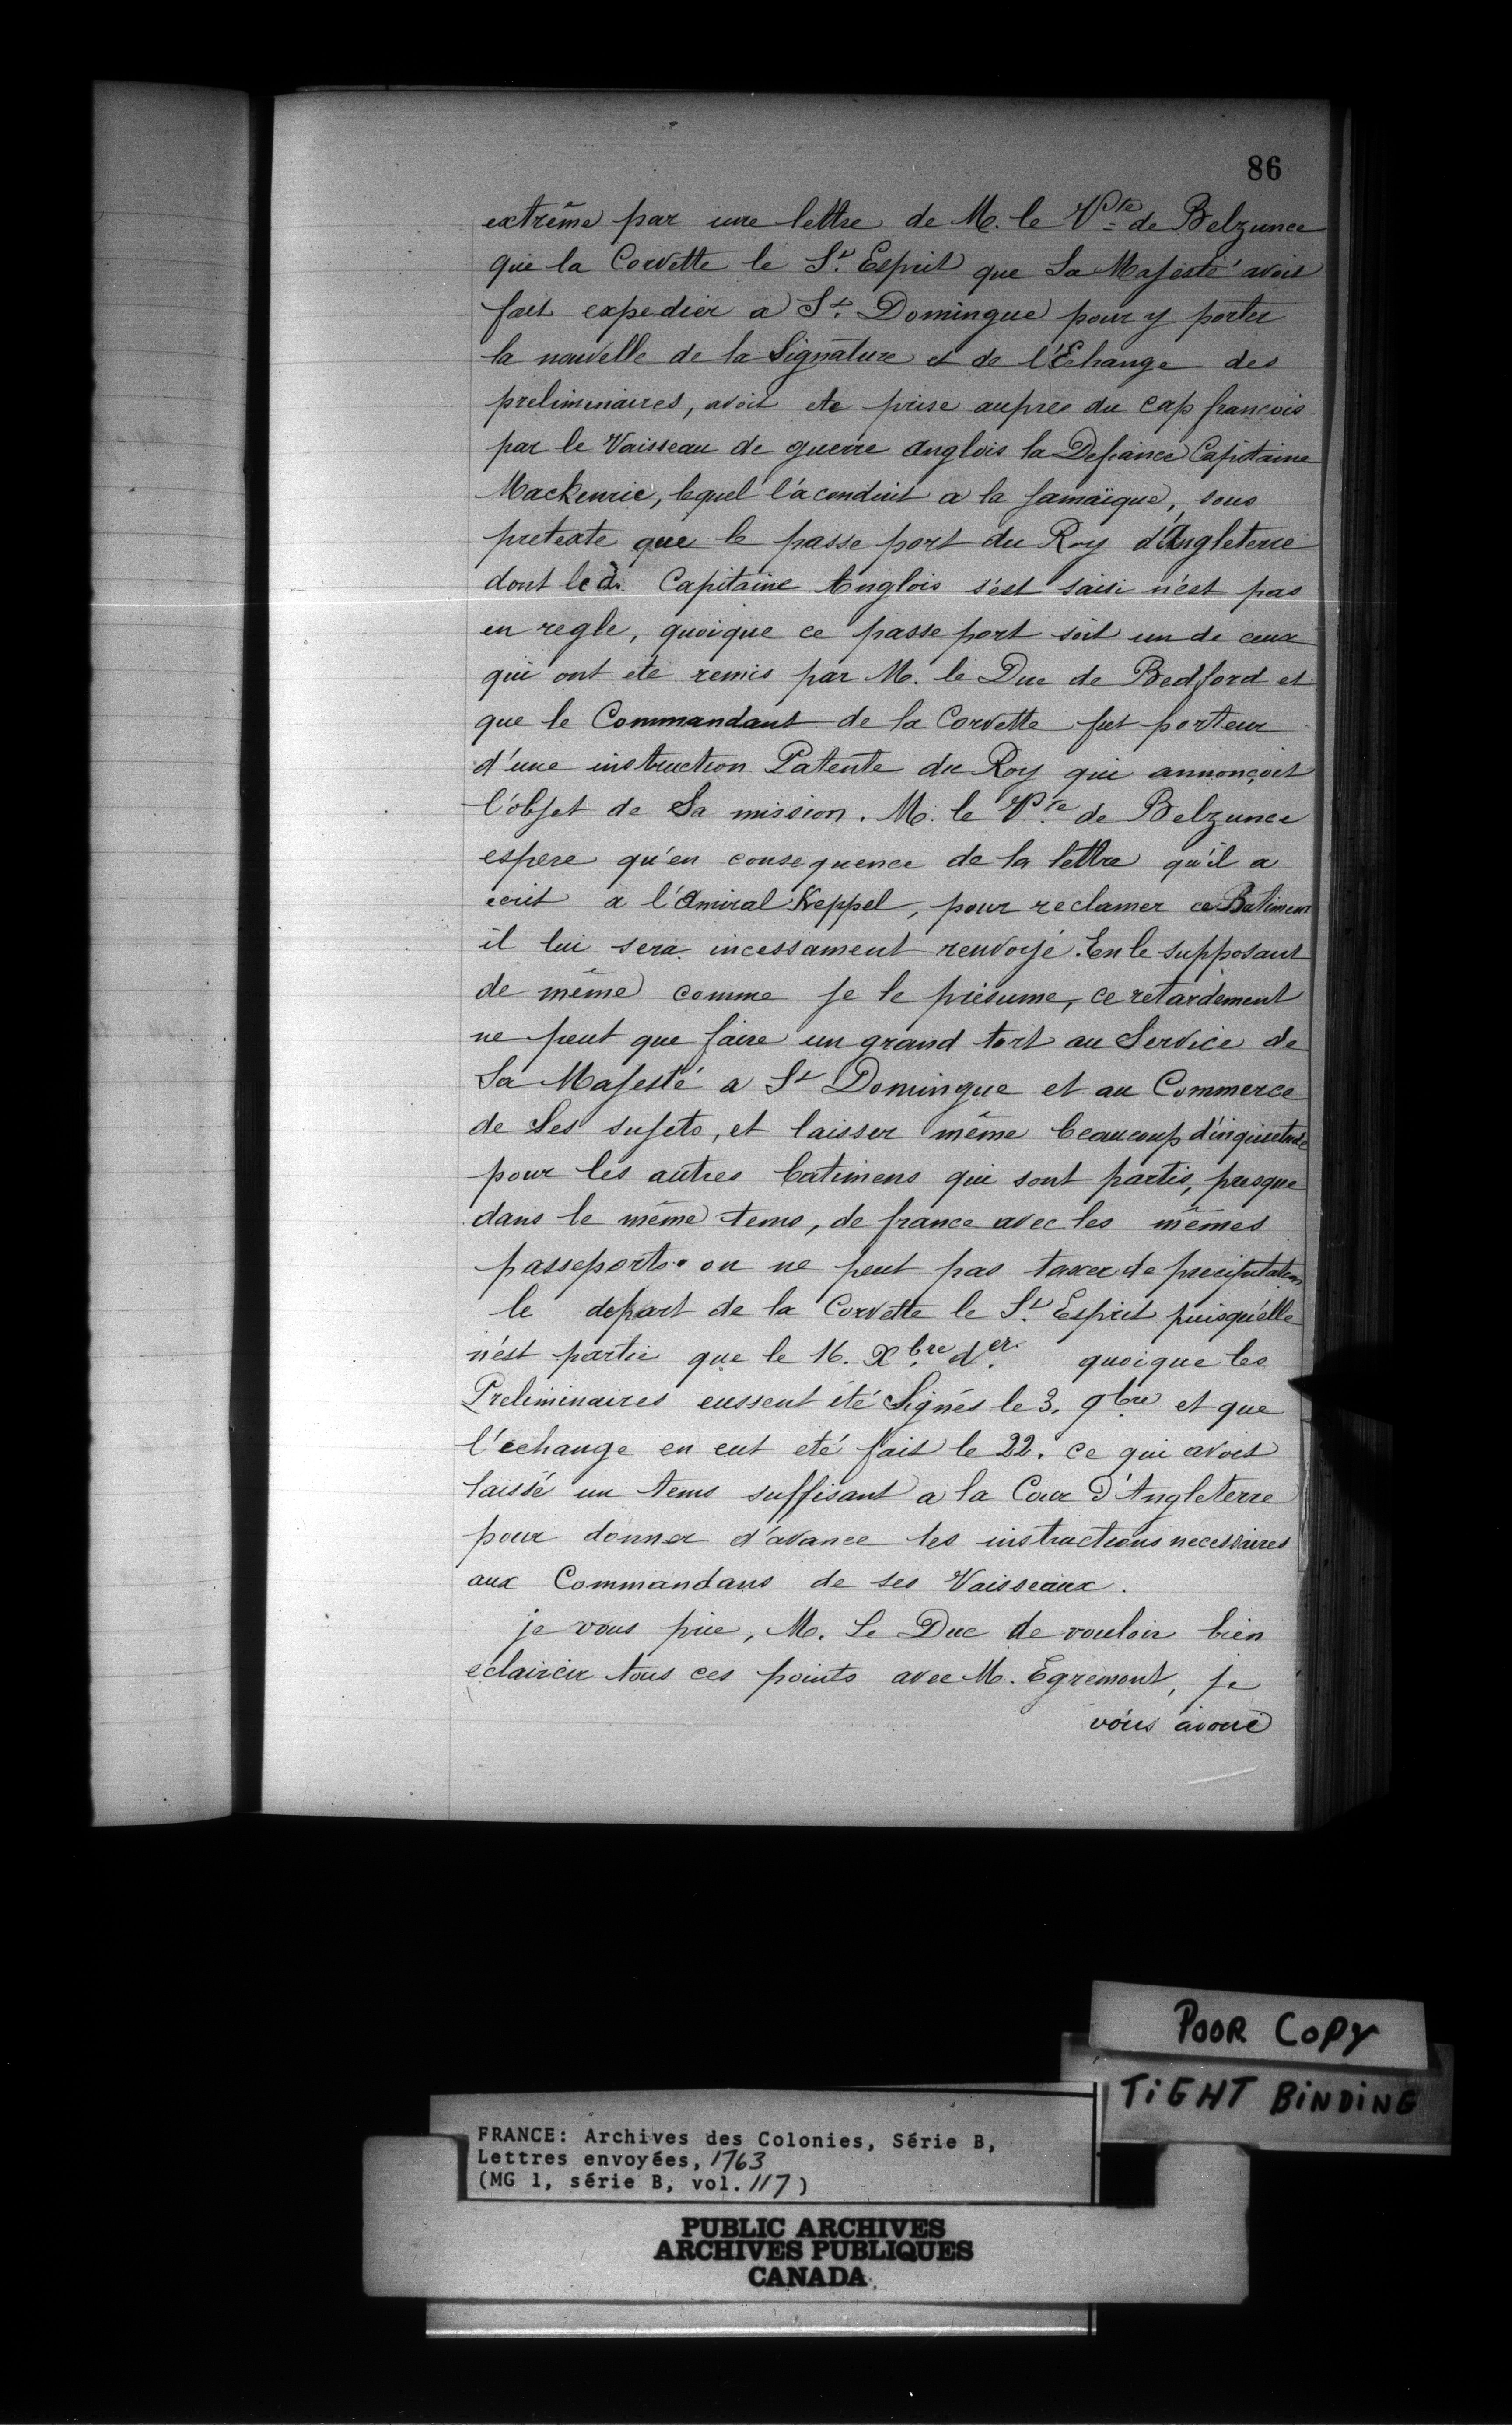 86
extrême par une lettre de M. le Vte de Belzunce
que la Corvette le St. Esprit que Sa Majesté avoit
fait expedier a St. Domingue pour y porter
la nouvelle de la Signature et de l'Echange des
preliminaires, avoit ete prise aupres du cap françois
par le Vaisseau de guerre anglois la Defiance Capitaine
Mackenrie, lequel l'a conduit a la Jamaïque, sous
pretexte que le passe port du Roy d'Angleterre
dont led. Capitaine Anglois s'est saisi n'est pas
en regle, quoique ce passe port soit un de ceux
qui ont ete remis par M. le Duc de Bedford et
que le Commandant de la Corvette fut porteur
d'une instruction Patente du Roy qui annonçoit
l'objet de Sa mission. M. le Vte de Belzunce
espere qu'en consequence de la lettre qu'il a
ecrit a l'Amiral Keppel, pour reclamer ce Batiment
il lui sera incessament renvoyé. En le supposant
de même comme je le présume, ce retardement
ne peut que faire un grand tort au Service de
Sa Majesté a St Domingue et au Commerce
de Ses sujets, et laisser même beaucoup d'inquietude
pour les autres batimens qui sont partis, presque
dans le même tems, de france avec les mêmes
passeports. on ne peut pas taxer de precipitation
le depart de la Corvette le St. Esprit puisqu'elle
n'est partie que le 16. Xbre der. quoique les
Preliminaires eussent été Signés le 3. 9bre et que
l'echange en eut eté fait le 22. ce qui avoit
laissé un tems suffisant a la Cour D'Angleterre
pour donner d'avance les instructions necessaires
aux Commandans de ses Vaisseaux.
je vous prie, M. Le Duc de vouloir bien
eclaircir tous ces points avec M. Egremont, je
vous avoue
POOR COPY
TIGHT BINDING
FRANCE: Archives des Colonies, Série B,
Lettres envoyées, 1763
(MG 1, série B, vol. 117)
PUBLIC ARCHIVES
ARCHIVES PUBLIQUES
CANADA